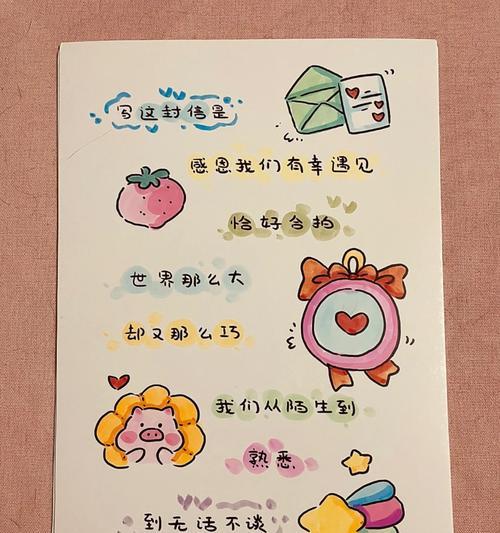 写这封信是
感恩我们有幸遇见
恰好合拍
世界那么大
却又那么巧
我们从陌生到
熟悉
到无话不谈